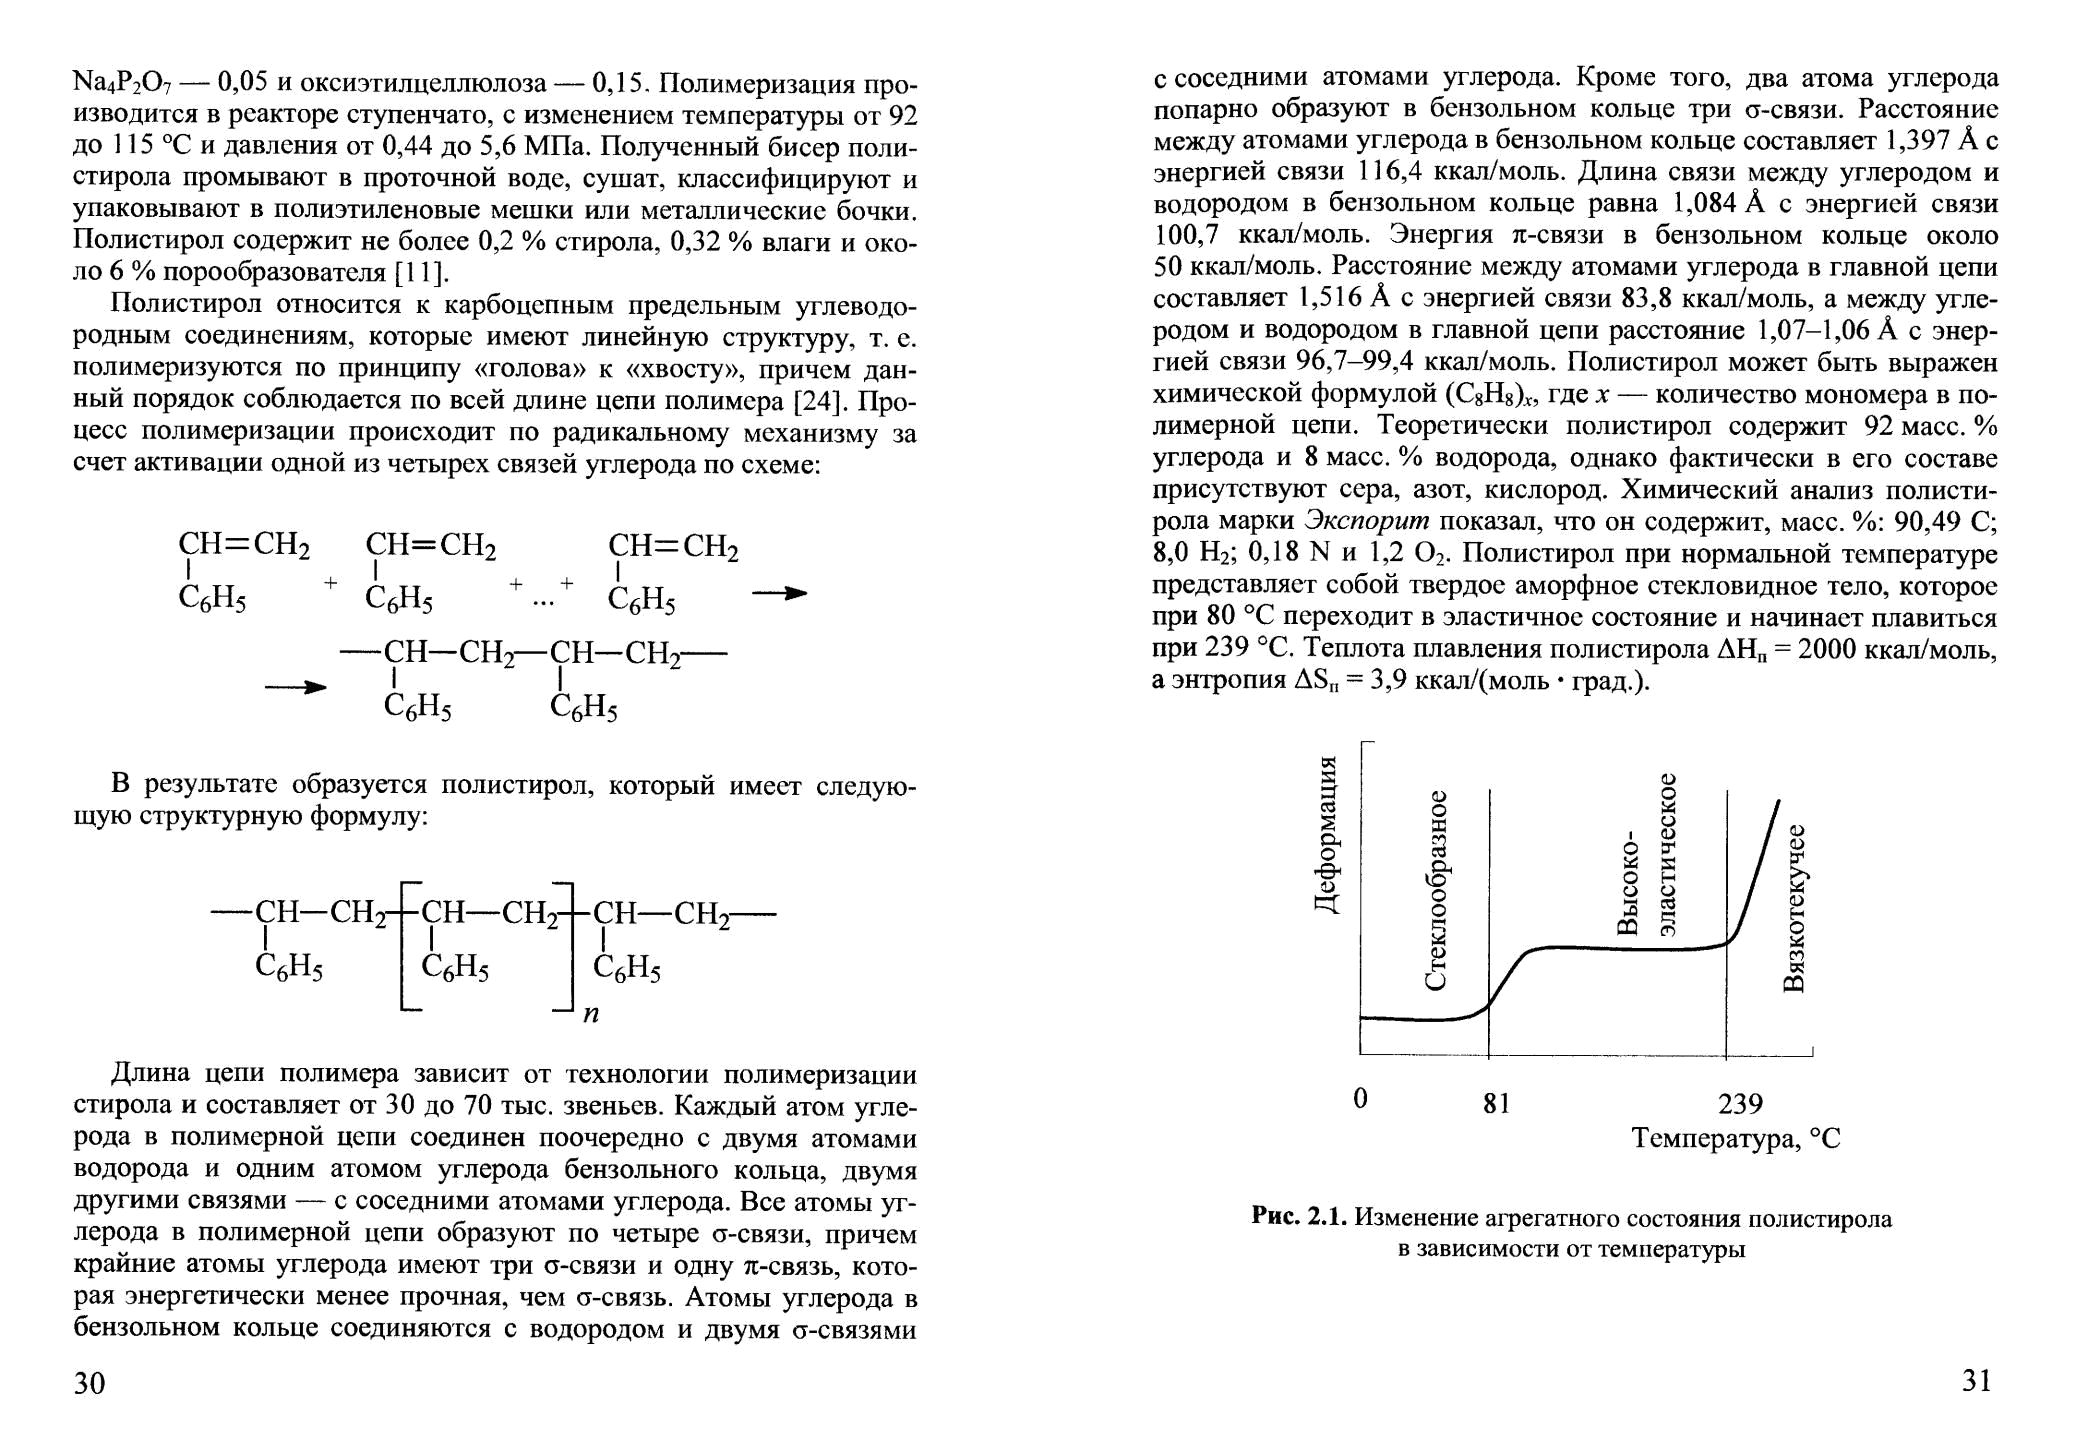 Na₄P₂O₇ — 0,05 и оксиэтилцеллюлоза — 0,15. Полимеризация про-
изводится в реакторе ступенчато, с изменением температуры от 92
до 115 °С и давления от 0,44 до 5,6 МПа. Полученный бисер поли-
стирола промывают в проточной воде, сушат, классифицируют и
упаковывают в полиэтиленовые мешки или металлические бочки.
Полистирол содержит не более 0,2 % стирола, 0,32 % влаги и око-
ло 6 % порообразователя [11].
Полистирол относится к карбоцепным предельным углеводо-
родным соединениям, которые имеют линейную структуру, т. е.
полимеризуются по принципу «голова» к «хвосту», причем дан-
ный порядок соблюдается по всей длине цепи полимера [24]. Про-
цесс полимеризации происходит по радикальному механизму за
счет активации одной из четырех связей углерода по схеме:
CH=CH₂ CH=CH₂ CH=CH₂
C₆H₅ + C₆H₅ + ... + C₆H₅ →
—CH—CH₂—CH—CH₂—
→ C₆H₅ C₆H₅
В результате образуется полистирол, который имеет следую-
щую структурную формулу:
—CH—CH₂—[—CH—CH₂—]—CH—CH₂—
C₆H₅ C₆H₅ C₆H₅
n
Длина цепи полимера зависит от технологии полимеризации
стирола и составляет от 30 до 70 тыс. звеньев. Каждый атом угле-
рода в полимерной цепи соединен поочередно с двумя атомами
водорода и одним атомом углерода бензольного кольца, двумя
другими связями — с соседними атомами углерода. Все атомы уг-
лерода в полимерной цепи образуют по четыре σ-связи, причем
крайние атомы углерода имеют три σ-связи и одну π-связь, кото-
рая энергетически менее прочная, чем σ-связь. Атомы углерода в
бензольном кольце соединяются с водородом и двумя σ-связями
30
с соседними атомами углерода. Кроме того, два атома углерода
попарно образуют в бензольном кольце три σ-связи. Расстояние
между атомами углерода в бензольном кольце составляет 1,397 Å с
энергией связи 116,4 ккал/моль. Длина связи между углеродом и
водородом в бензольном кольце равна 1,084 Å с энергией связи
100,7 ккал/моль. Энергия π-связи в бензольном кольце около
50 ккал/моль. Расстояние между атомами углерода в главной цепи
составляет 1,516 Å с энергией связи 83,8 ккал/моль, а между угле-
родом и водородом в главной цепи расстояние 1,07–1,06 Å с энер-
гией связи 96,7–99,4 ккал/моль. Полистирол может быть выражен
химической формулой (C₈H₈)ₓ, где x — количество мономера в по-
лимерной цепи. Теоретически полистирол содержит 92 масс. %
углерода и 8 масс. % водорода, однако фактически в его составе
присутствуют сера, азот, кислород. Химический анализ полисти-
рола марки Экспорит показал, что он содержит, масс. %: 90,49 С;
8,0 H₂; 0,18 N и 1,2 O₂. Полистирол при нормальной температуре
представляет собой твердое аморфное стекловидное тело, которое
при 80 °С переходит в эластичное состояние и начинает плавиться
при 239 °С. Теплота плавления полистирола ΔHп = 2000 ккал/моль,
а энтропия ΔSп = 3,9 ккал/(моль · град.).
Деформация
Стеклообразное
Высоко-
эластическое
Вязкотекучее
0 81 239
Температура, °С
Рис. 2.1. Изменение агрегатного состояния полистирола
в зависимости от температуры
31